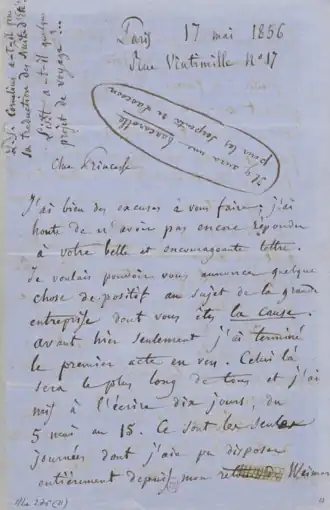 Paris 17 mai 1856
Rue Vintimille N° 17
M. Cornelius a-t-il fini
sa traduction des Nuits d'été?
Liszt a-t-il quelque
projet de voyage?..
Il y aura une barcarolle
pour les serpents de Laocoon
Chere Princesse
J'ai bien des excuses à vous faire; j'ai
honte de n'avoir pas encore répondu
à votre belle et encourageante lettre.
Je voulais pouvoir vous annoncer quelque
chose de positif au sujet de la grande
entreprise dont vous êtes la cause.
avant hier seulement j'ai terminé
le premier acte en vers. Celui là
sera le plus long de tous et j'ai
mis à l'écrire dix jours, du
5 mai au 15. Ce sont les seules
journées dont j'aie pu disposer
entièrement depuis mon retour de Weimar